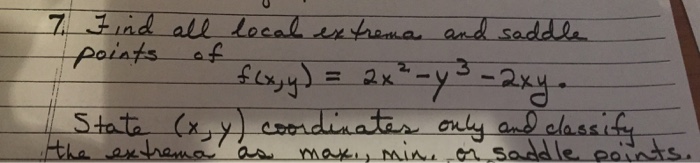 7. Find all local extrema and saddle
points of
f(x,y) = 2x² - y³ - 2xy.
State (x,y) coordinates only and classify
the extrema as max., min. or saddle points